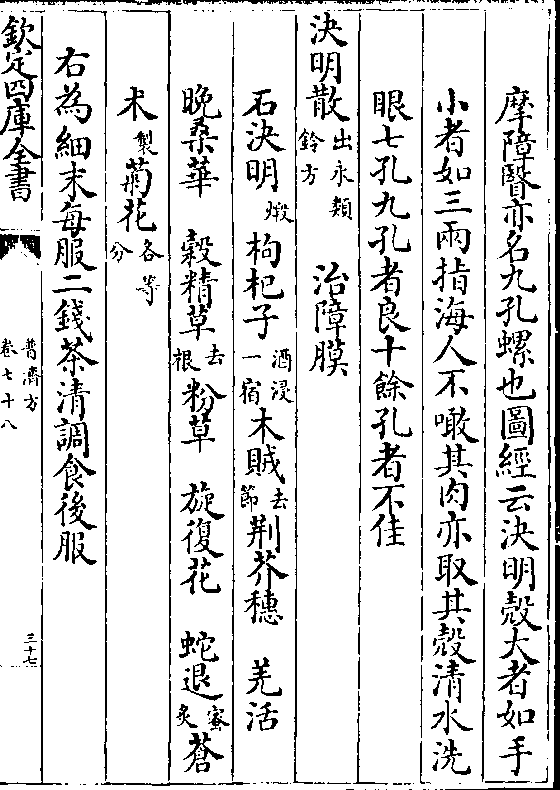 摩障翳亦名九孔螺也圖經云決明殼大者如手
小者如三兩指海人不噉其肉亦取其殼清水洗
眼七孔九孔者良十餘孔者不佳
決明散出永類鈐方 治障膜
石決明煅 枸杞子酒浸一宿 木賊去節 荆芥穗 羌活
晩桑華 榖精草去根 粉草 旋復花 蛇退蜜炙 蒼
术製 菊花各等分
右為細末每服二錢茶清調食後服
欽定四庫全書
普濟方
卷七十八
三十七